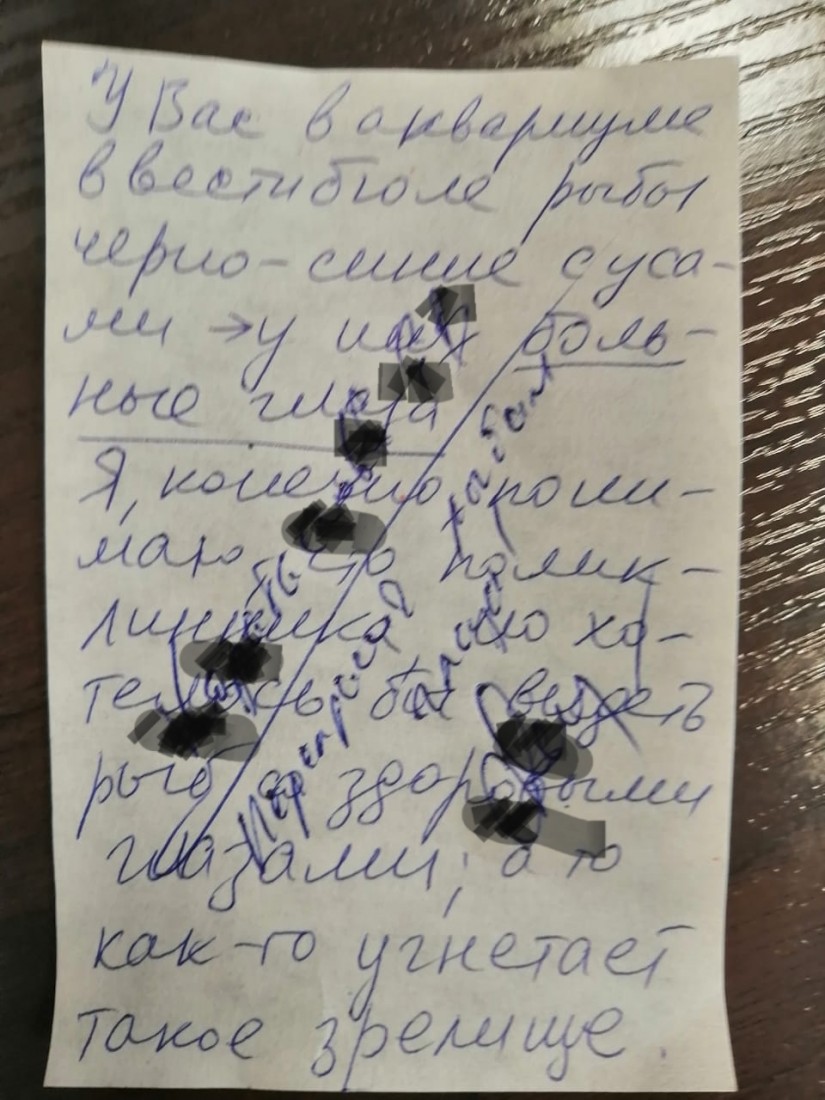 У Вас в аквариуме
в вестибюле рыбы
черно-синие с уса-
ми → у них боль-
ные глаза
Я, конечно пони-
маю что полик-
линника, но хо-
телось бы видеть
рыб со здоровыми
глазами; а то
как-то угнетает
такое зрелище.